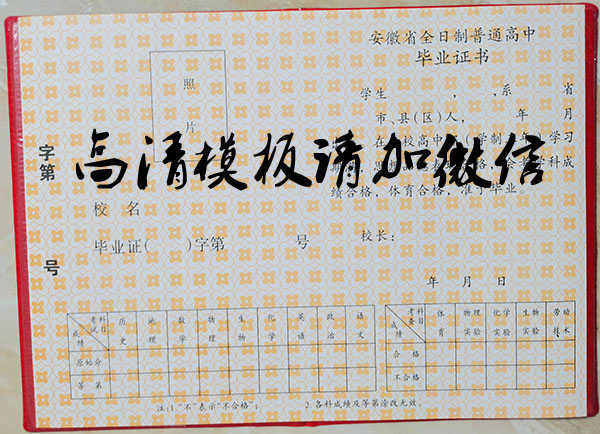 安徽省全日制普通高中
毕业证书
照
片
学生 , ,系 省
市、县(区)人, 年 月
高清模板请加微信
绩合格，体育合格，准予毕业。
校 名
毕业证( )字第 号
校长：
年 月 日
字第 号
考试科目 成绩 历史 地理 数学 物理 生物 化学 英语 政治 语文
原始分
等第
考查科目 成绩 体育 物理实验 化学实验 生物实验 劳动技术
合格
不合格
注:1."不"表示"不合格"; 2.各科成绩及等第涂改无效。